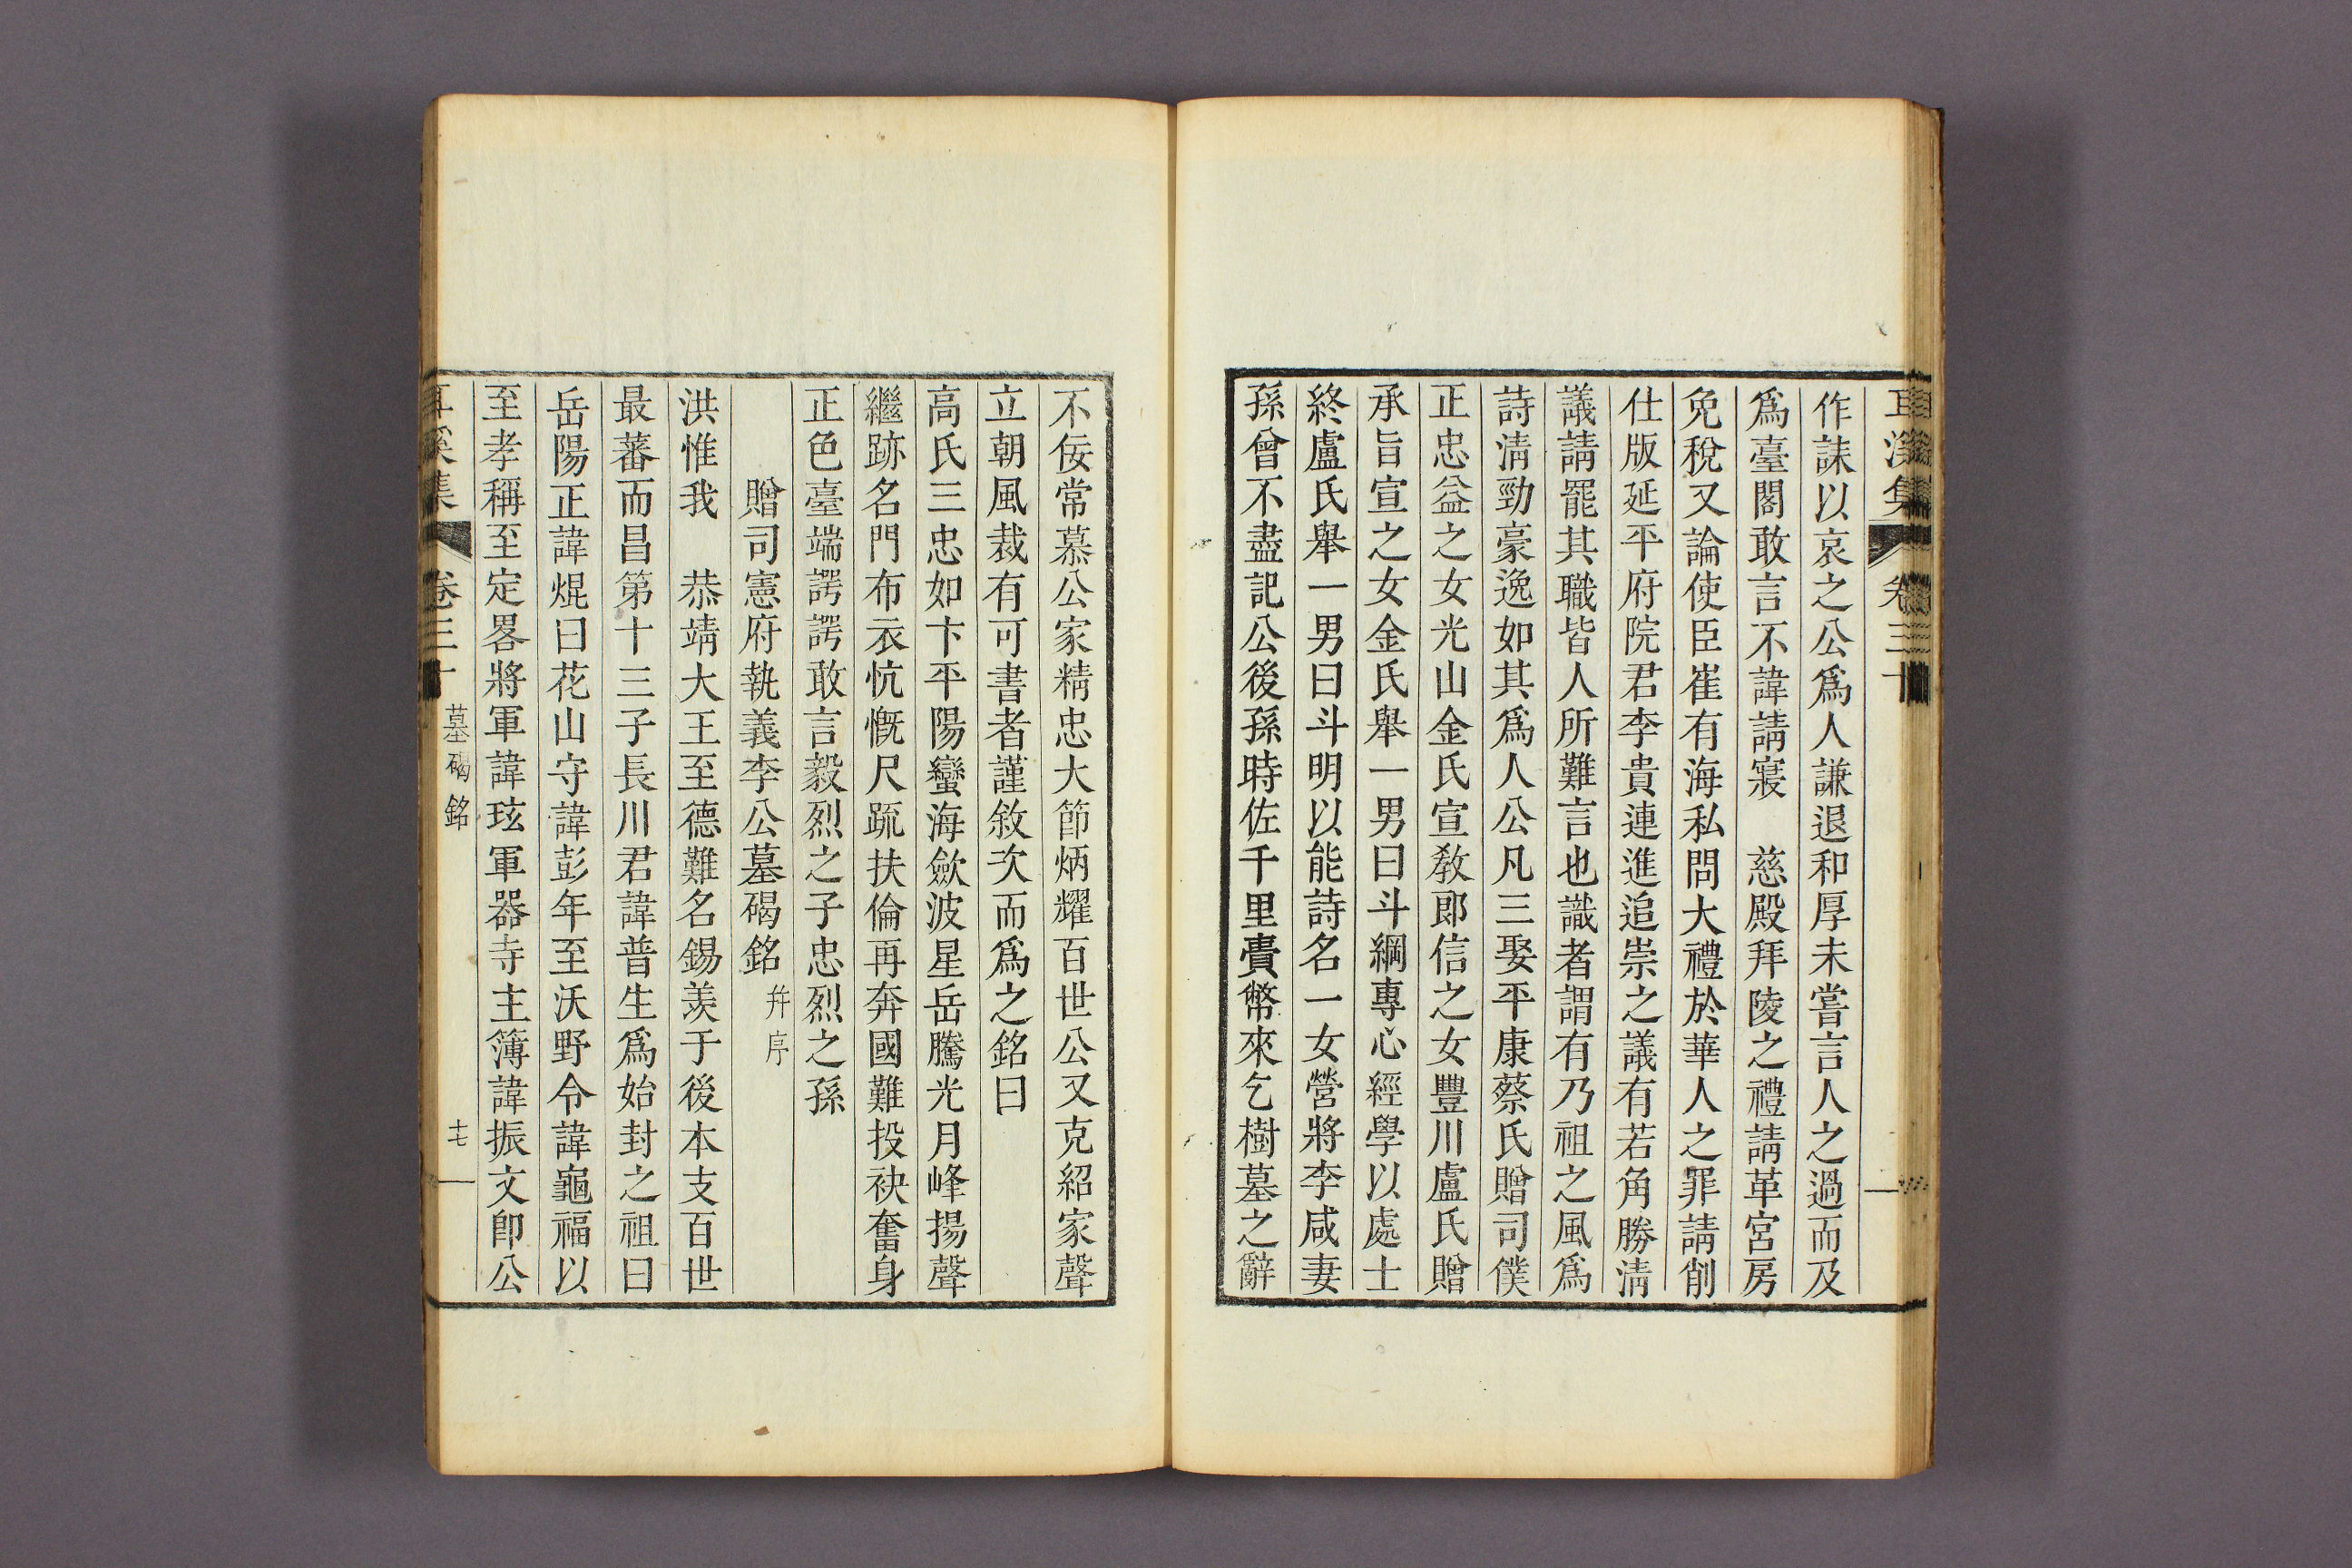 耳溪集 卷三十
作誄以哀之公爲人謙退和厚未嘗言人之過而及
爲臺閣敢言不諱請寢　慈殿拜陵之禮請革宮房
免稅又論使臣崔有海私問大禮於華人之罪請削
仕版延平府院君李貴連進追崇之議有若角勝淸
議請罷其職皆人所難言也識者謂有乃祖之風爲
詩淸勁豪逸如其爲人公凡三娶平康蔡氏贈司僕
正忠益之女光山金氏宣敎郎信之女豐川盧氏贈
承旨宣之女金氏舉一男曰斗綱專心經學以處士
終盧氏舉一男曰斗明以能詩名一女營將李咸妻
孫曾不盡記公後孫時佐千里賷幣來乞樹墓之辭
不佞常慕公家精忠大節炳耀百世公又克紹家聲
立朝風裁有可書者謹敘次而爲之銘曰
高氏三忠如卞平陽蠻海歛波星岳騰光月峰揚聲
繼跡名門布衣忼慨尺䟽扶倫再奔國難投袂奮身
正色臺端諤諤敢言毅烈之子忠烈之孫
贈司憲府執義李公墓碣銘 幷序
洪惟我　恭靖大王至德難名錫羨于後本支百世
最蕃而昌第十三子長川君諱普生爲始封之祖曰
岳陽正諱焜曰花山守諱彭年至沃野令諱龜福以
至孝稱至定畧將軍諱玹軍器寺主簿諱振文卽公
耳溪集 卷三十 墓碣銘 十七